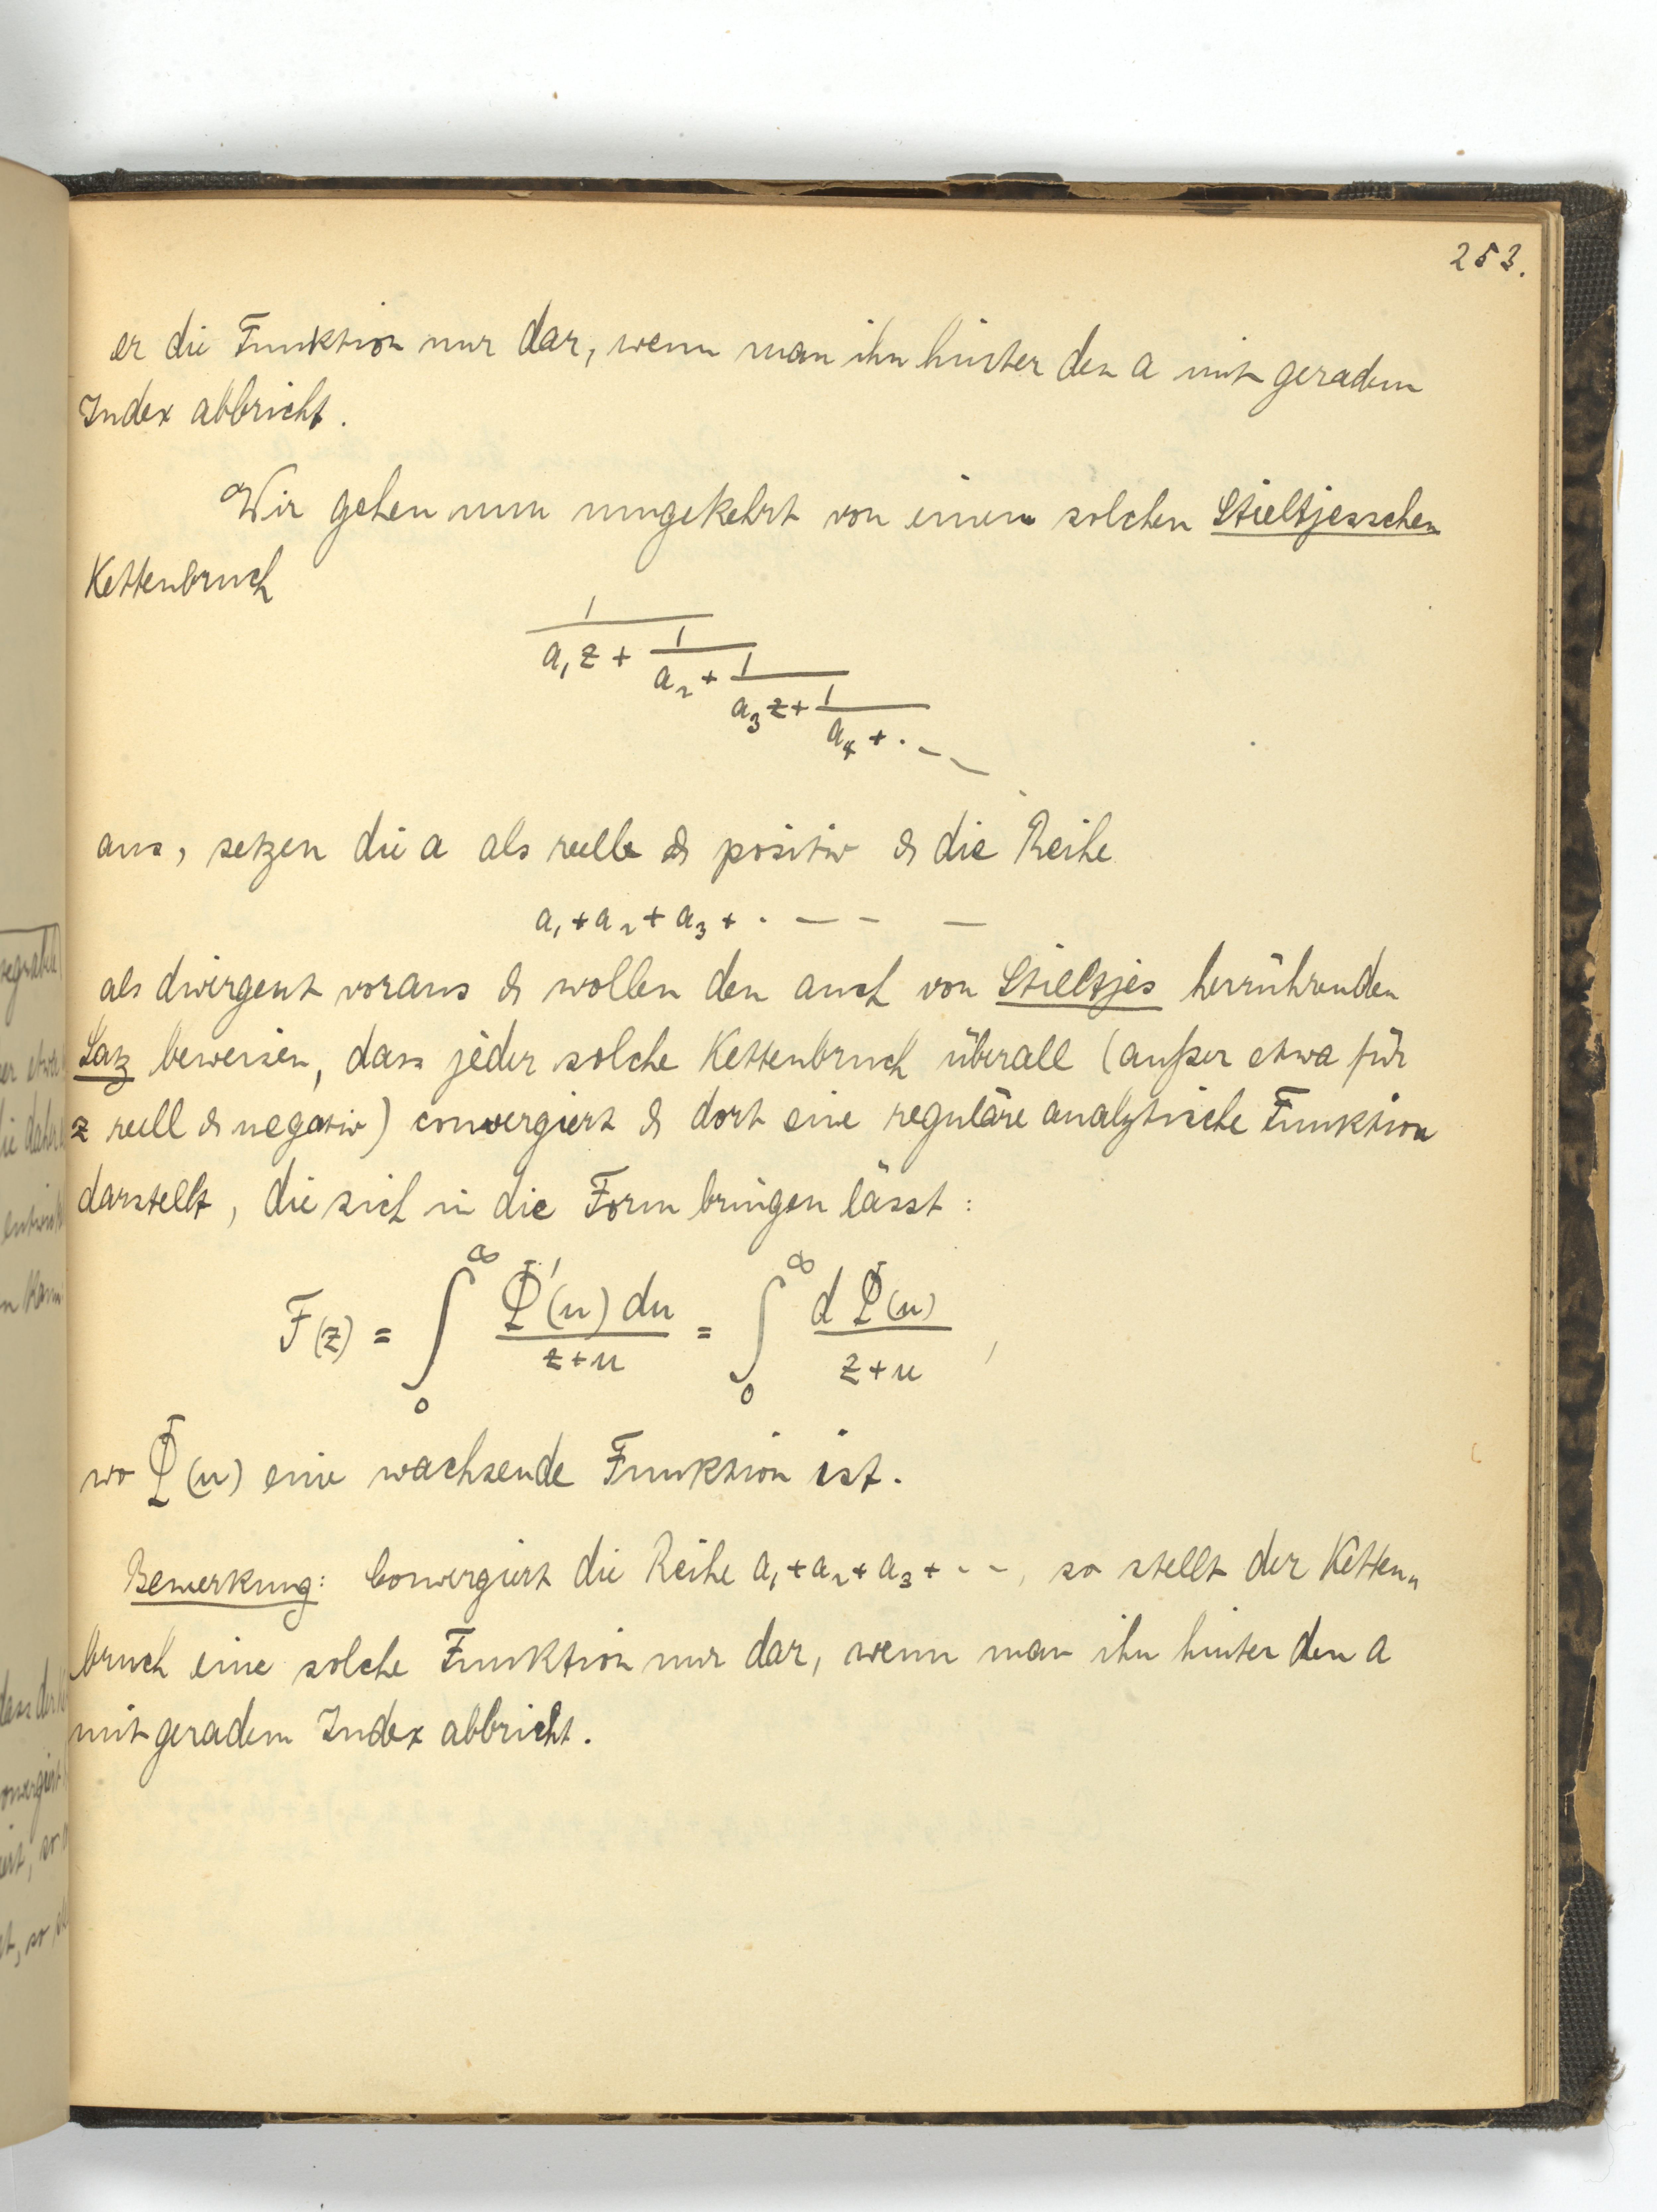 253.
er die Funktion nur dar, wenn man ihn hinter den a mit geradem
Index abbricht.
Wir gehen nun umgekehrt von einem solchen Stieltjesschen
Kettenbruch
1
a₁z + 1
a₂ + 1
a₃z + 1
a₄ + · – –
aus, setzen die a als reelle & positiv & die Reihe
a₁ + a₂ + a₃ + · – – –
als divergent voraus & wollen den auch von Stieltjes herrührenden
Satz beweisen, dass jeder solche Kettenbruch überall (außer etwa für
z reell & negativ) convergiert & dort eine reguläre analytische Funktion
darstellt, die sich in die Form bringen lässt:
F(z) = ∫₀^∞ Φ'(u) du / z+u = ∫₀^∞ d Φ(u) / z+u ,
wo Φ(u) eine wachsende Funktion ist.
Bemerkung: Convergiert die Reihe a₁ + a₂ + a₃ + · – –, so stellt der Ketten„
bruch eine solche Funktion nur dar, wenn man ihn hinter den a
mit geradem Index abbricht.